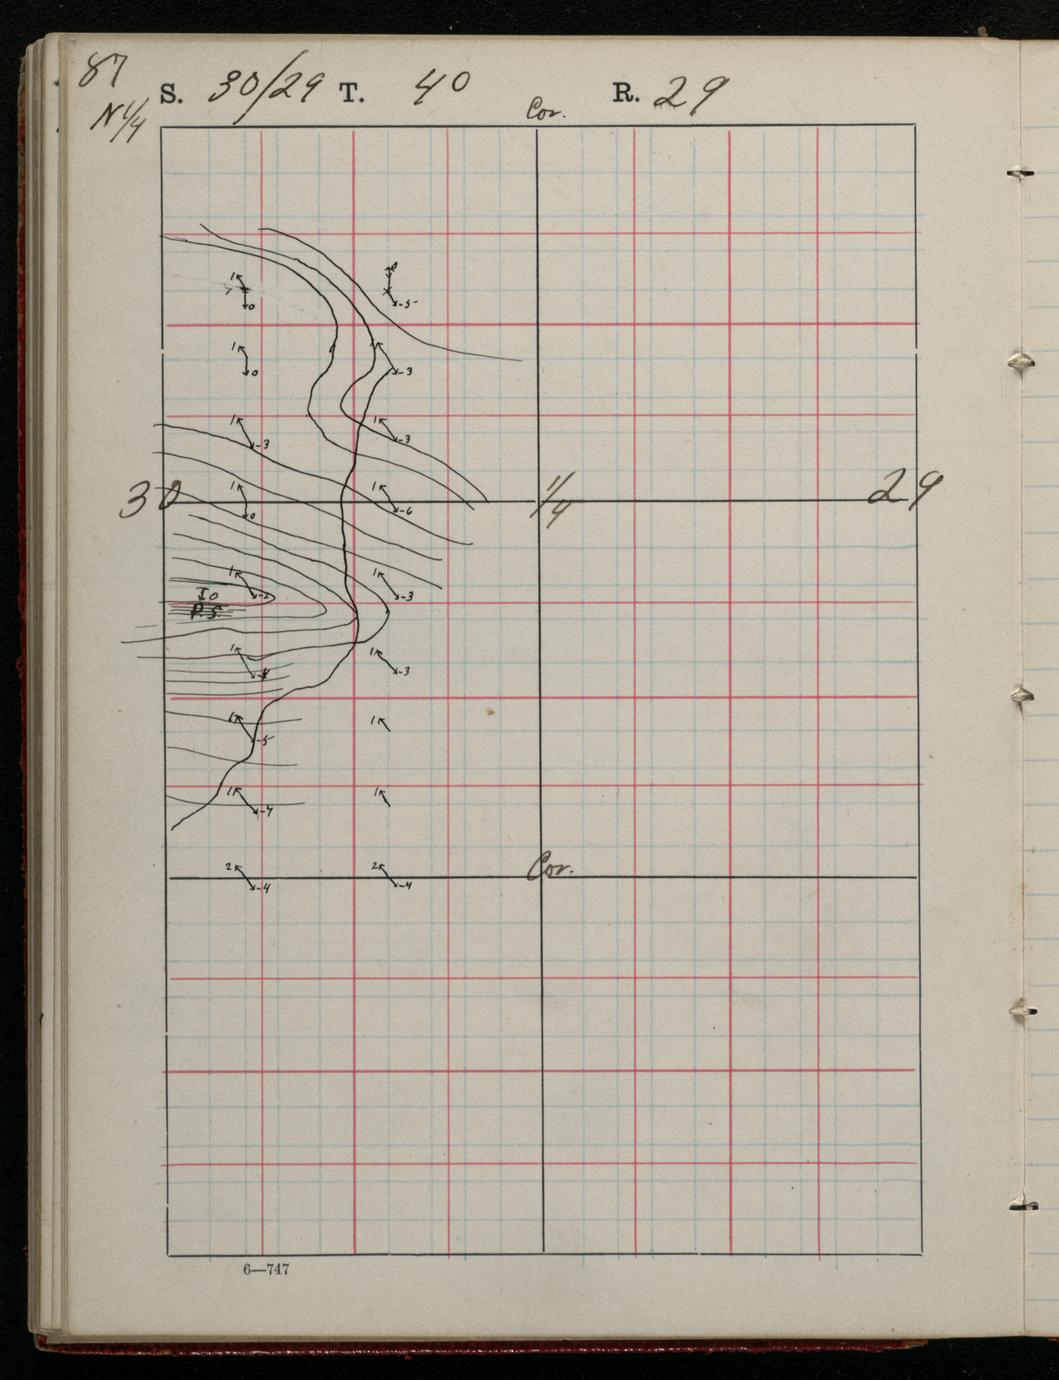 87
S. 30/29 T. 40 R. 29
N 1/4
Cor.
1 0
-5
1 0
1 -3
1 -3
1 -3
30 1 0
1 -6
1/4
29
1 -2
1 -3
Io
P.S.
1 -4
1 -3
1 -5
1
1 -4
1
2 -4
2 -4
Cor.
6—747